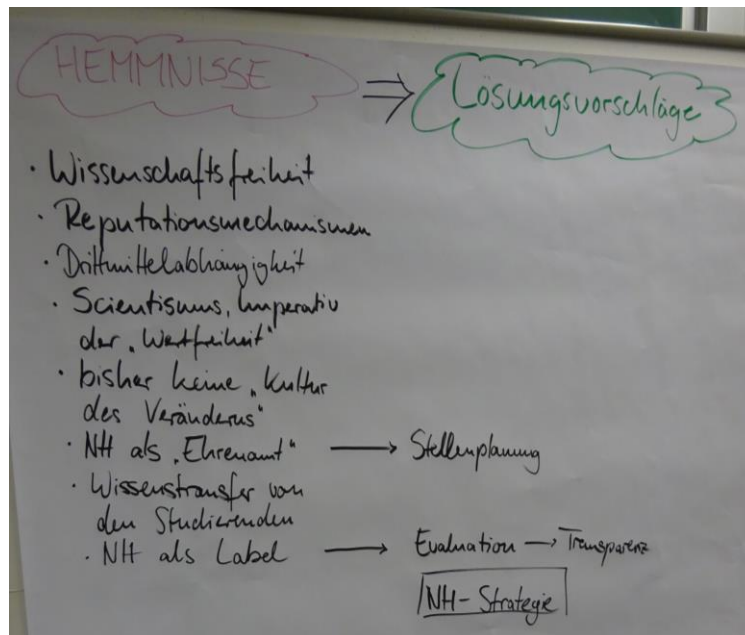 HEMMNISSE ⇒ Lösungsvorschläge
· Wissenschaftsfreiheit
· Reputationsmechanismen
· Drittmittelabhängigkeit
· Scientismus, Imperativ
der „Wertfreiheit“
· bisher keine „Kultur
des Veränderns“
· NH als „Ehrenamt“ → Stellenplanung
· Wissenstransfer von
den Studierenden
· NH als Label → Evaluation → Transparenz
NH-Strategie